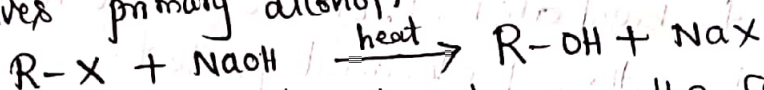 ves primary alcohol,
R-X + NaOH heat→ R-OH + NaX